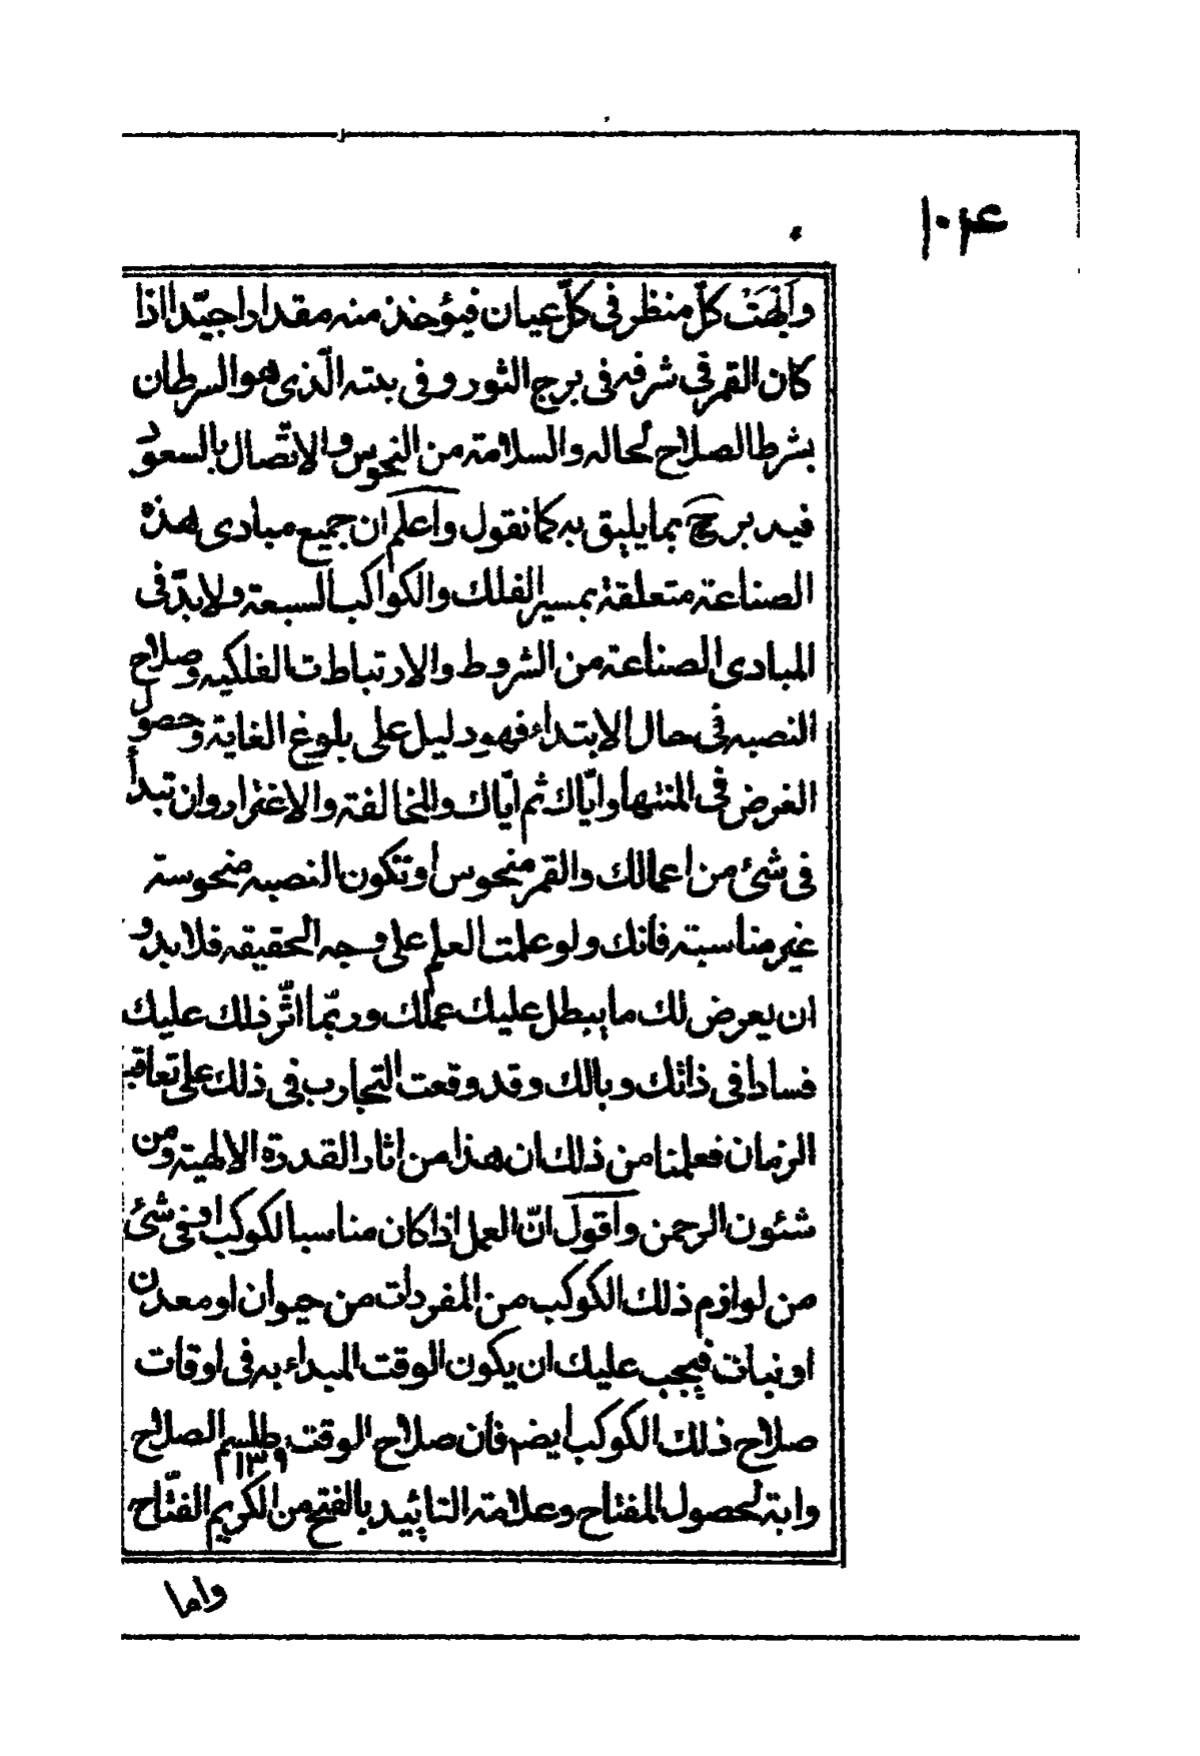 ١٠٤
وأبهت كلّ منظر فى كلّ عيان فيؤخذ منه مقدارا جيّدا اذا
كان القمر فى شرفه فى برج الثور وفى بيته الّذى هو السرطان
بشرط الصلاح لحاله والسلامة من النحوس والاتّصال بالسعود
فيدبر ح بما يليق به كما نقول واعلم ان جميع مبادى هذه
الصناعة متعلقة بمسير الفلك والكواكب السبعة ولا بدّ فى
المبادى الصناعة من الشروط والارتباطات الفلكيه وصلاح
النصبه فى حال الابتداء فهو دليل على بلوغ الغاية وحصول
الغرض فى المنتها وايّاك ثم ايّاك والمخالفة والاغترار وان تبدأ
فى شئ من اعمالك والقمر منحوس او تكون النصبه منحوسة
غير مناسبة فأنك ولو علمت العلم على وجه الحقيقه فلا بد و
ان يعرض لك ما يبطل عليك عملك وربّما اثّر ذلك عليك
فسادا فى ذاتك وبالك وقد وقعت التجارب فى ذلك على تعاقب
الزمان فعلمنا من ذلك ان هذا من اثار القدرة الالهية ومن
شئون الرحمن وأقول انّ العمل اذا كان مناسبا لكوكب او فى شئ
من لوازم ذلك الكوكب من المفردات من حيوان او معدن
او نبات فيجب عليك ان يكون الوقت المبداء به فى اوقات
صلاح ذلك الكوكب ايضم فأن صلاح الوقت طلسم الصلاح
١٣٩
واية لحصول المفتاح وعلامة التائيد بالفتح من الكريم الفتّاح
واما